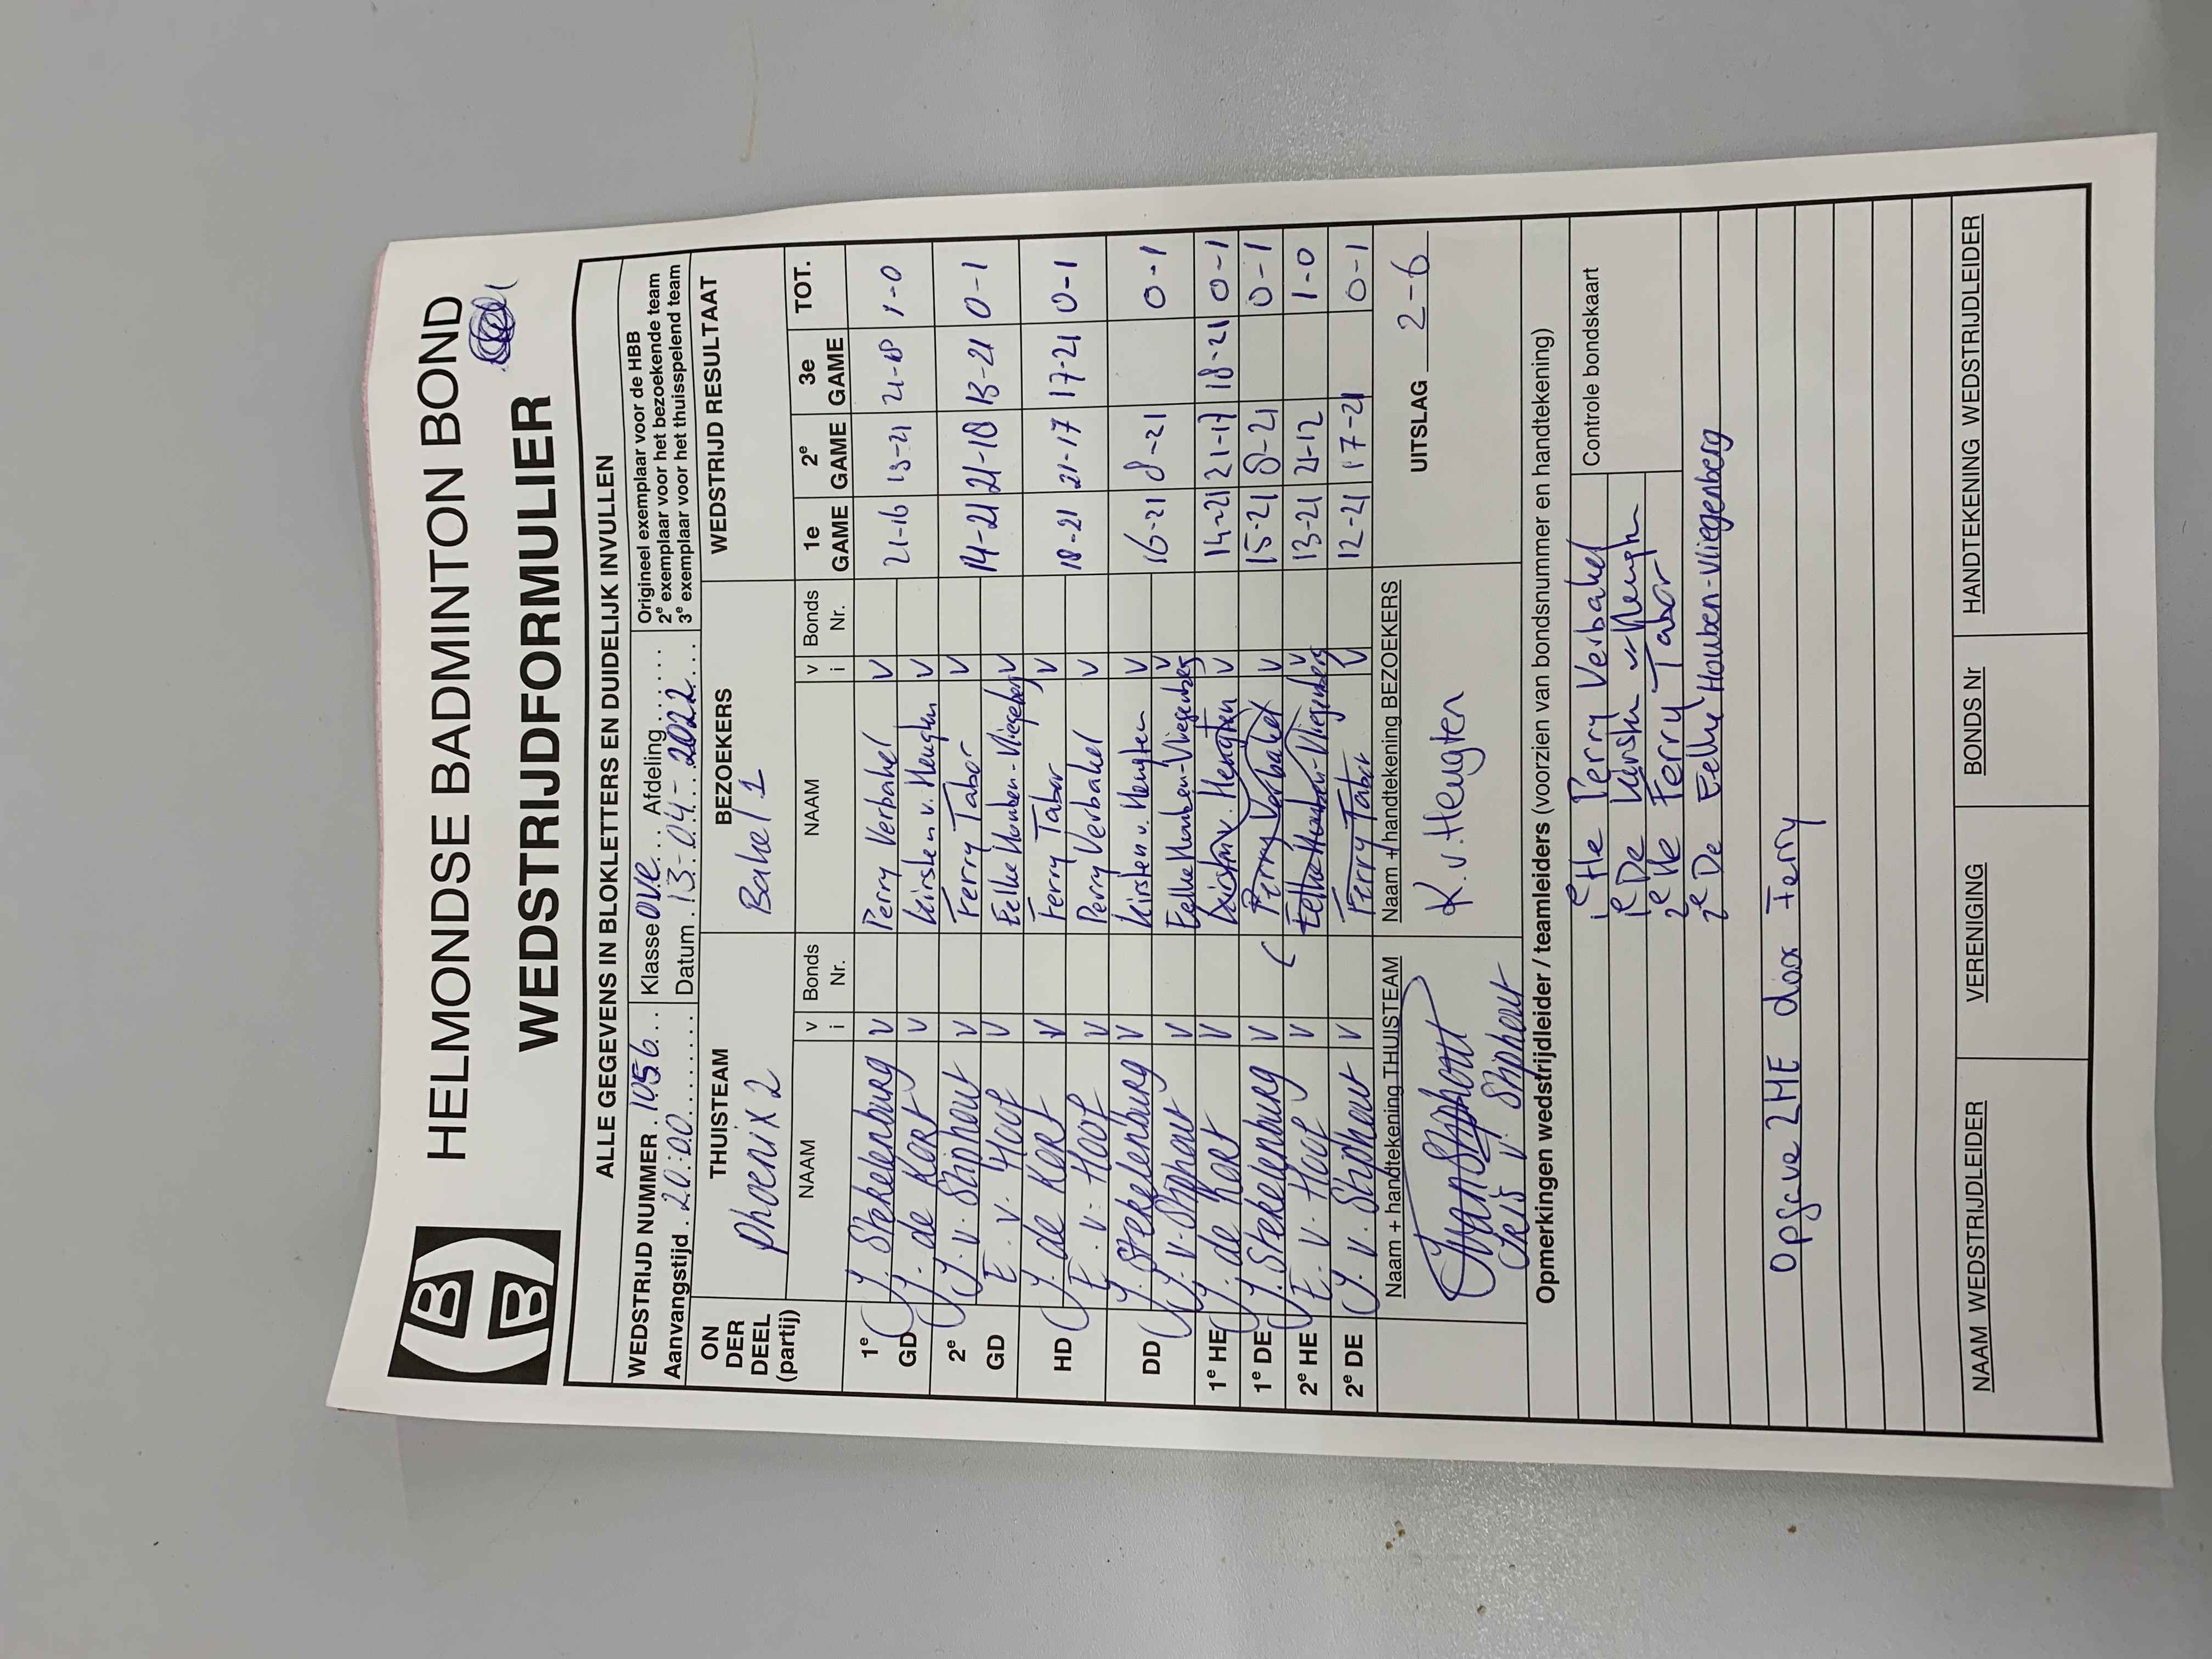 HELMONDSE BADMINTON BOND
WEDSTRIJDFORMULIER
ALLE GEGEVENS IN BLOKLETTERS EN DUIDELIJK INVULLEN
WEDSTRIJD NUMMER . 1056 ... Klasse OVE ... Afdeling ...... Origineel exemplaar voor de HBB
Aanvangstijd . 20:00 .......... Datum . 13-04-2022 ... 2e exemplaar voor het bezoekende team
3e exemplaar voor het thuisspelend team
ON DER DEEL (partij) THUISTEAM BEZOEKERS WEDSTRIJD RESULTAAT
Phoenix 2 Bakel 1
NAAM v i Bonds Nr. NAAM v i Bonds Nr. 1e GAME 2e GAME 3e GAME TOT.
1e GD Y. Stekelenburg V Perry Verbakel V 21-16 13-21 21-18 1-0
J. de Kort V Kirsten v. Heugten V
2e GD J. v. Stiphout V Ferry Tabor V 14-21 21-18 13-21 0-1
E. v. Hoof V Eelke Houben-Vliegenberg V
HD J. de Kort V Ferry Tabor V 18-21 21-17 17-21 0-1
E. v. Hoof V Perry Verbakel V
DD Y. Stekelenburg V Kirsten v. Heugten V 16-21 8-21 0-1
J. v. Stiphout V Eelke Houben-Vliegenberg V
1e HE J. de Kort V Kirsten v. Heugten V 14-21 21-17 18-21 0-1
1e DE Y. Stekelenburg V Perry Verbakel V 15-21 8-21 0-1
2e HE E. v. Hoof V Eelke Houben-Vliegenberg V 13-21 21-12 1-0
2e DE J. v. Stiphout V Ferry Tabor V 12-21 17-21 0-1
Naam + handtekening THUISTEAM Naam + handtekening BEZOEKERS
K. v. Heugten UITSLAG 2-6
v. Stiphout
Opmerkingen wedstrijdleider / teamleiders (voorzien van bondsnummer en handtekening)
1e He Perry Verbakel Controle bondskaart
1e De Kirsten v Heugten
2e He Ferry Tabor
2e De Eelke Houben-Vliegenberg
Opgave 2HE door Ferry
NAAM WEDSTRIJDLEIDER VERENIGING BONDS Nr HANDTEKENING WEDSTRIJDLEIDER